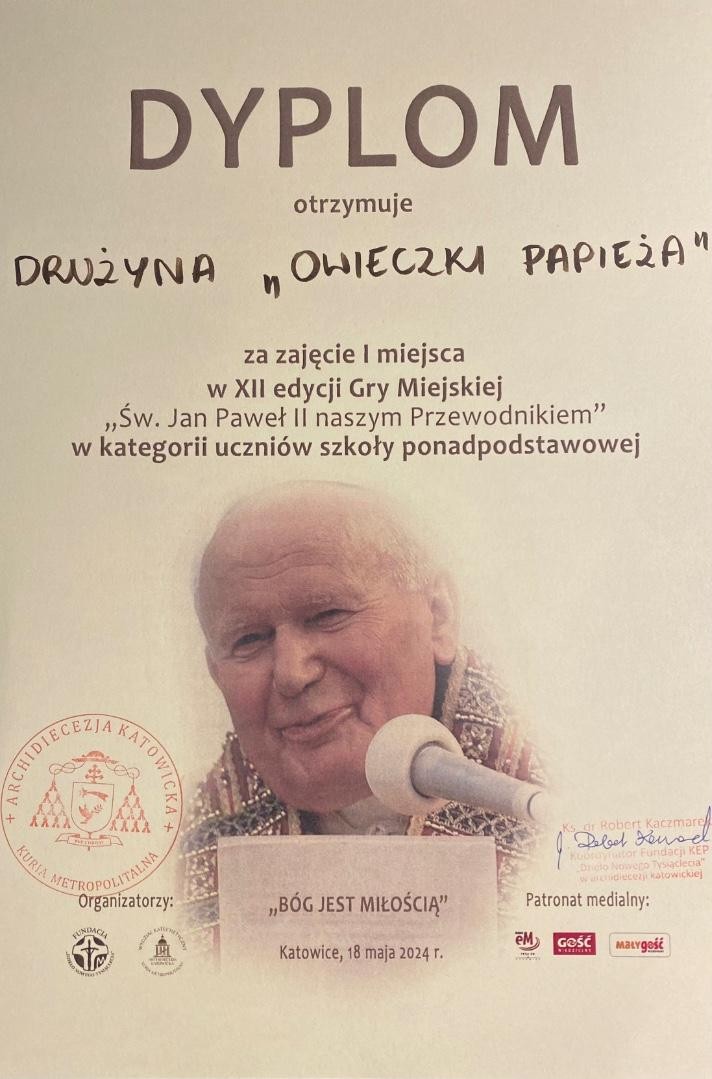 DYPLOM
otrzymuje
DRUŻYNA „OWIECZKI PAPIEŻA”
za zajęcie I miejsca
w XII edycji Gry Miejskiej
„Św. Jan Paweł II naszym Przewodnikiem”
w kategorii uczniów szkoły ponadpodstawowej
+ ARCHIDIECEZJA KATOWICKA +
KURIA METROPOLITALNA
Ks. dr Robert Kaczmarek
Koordynator Fundacji KEP
„Dzieło Nowego Tysiąclecia”
w archidiecezji katowickiej
Organizatorzy:
„BÓG JEST MIŁOŚCIĄ”
Patronat medialny:
FUNDACJA
Katowice, 18 maja 2024 r.
eM
GOŚĆ
NIEDZIELNY
małygość